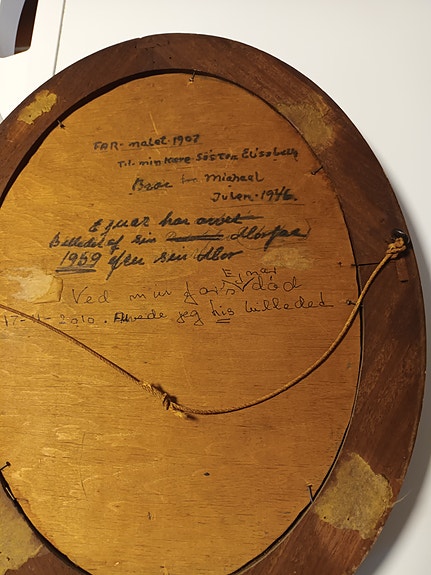 FAR - malet - 1907
Til min kære Søster Elisabeth
Bror Michael
Julen - 1946.
Ejnar har arvet
Billedet af sin Morfar
1959 sin Mor
Ejnar
Ved min fars død
17-4-2010. Arvede jeg his billeded